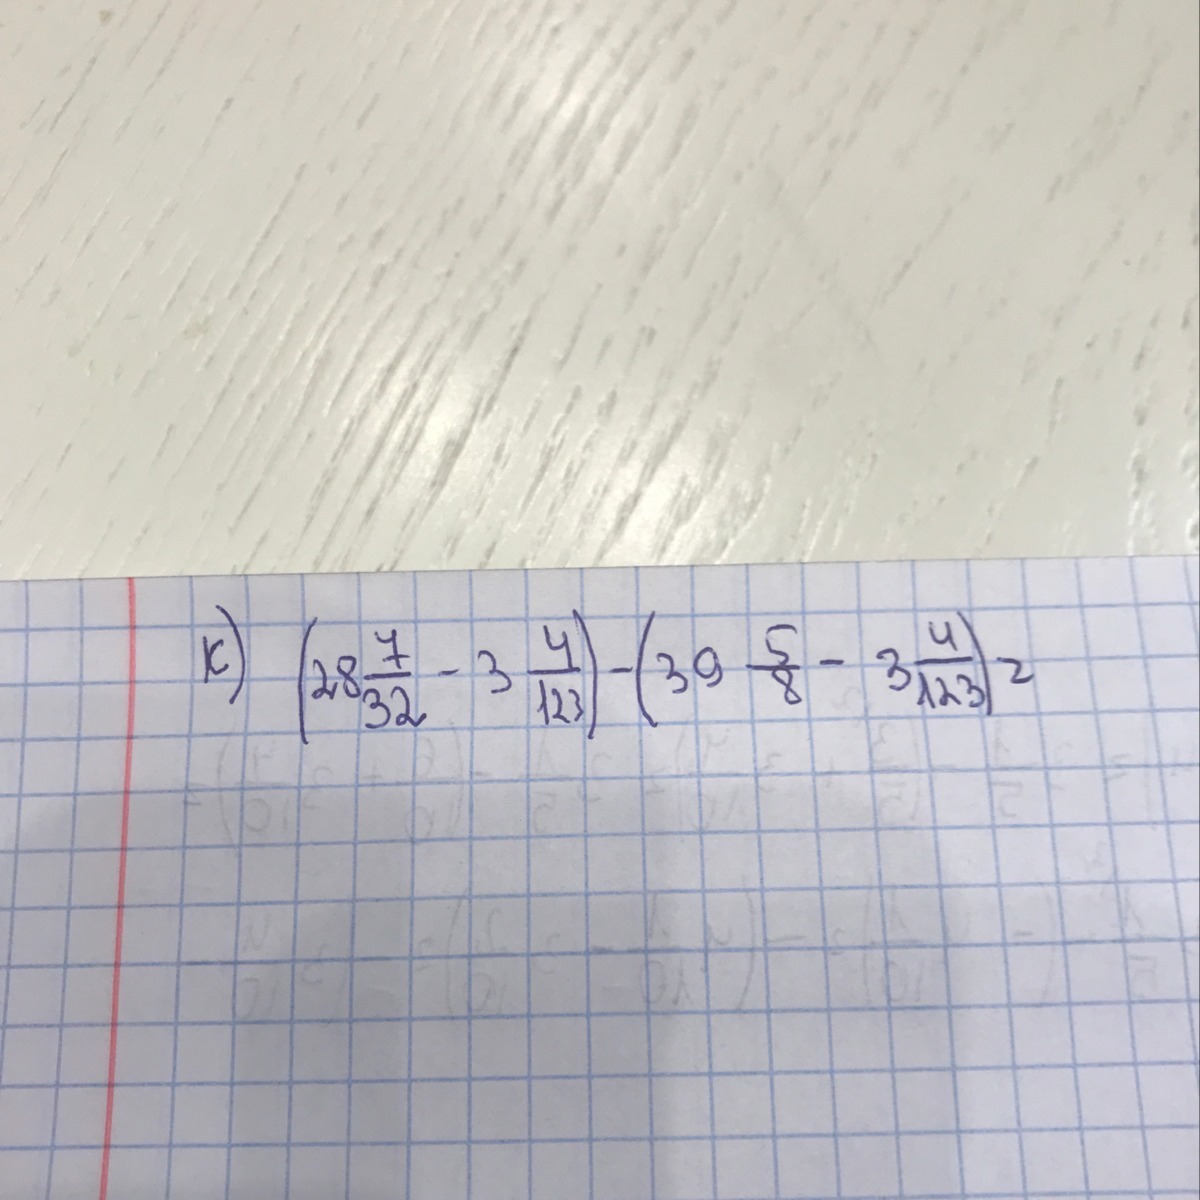 к) (28 7/32 - 3 4/123) - (39 5/8 - 3 4/123) =